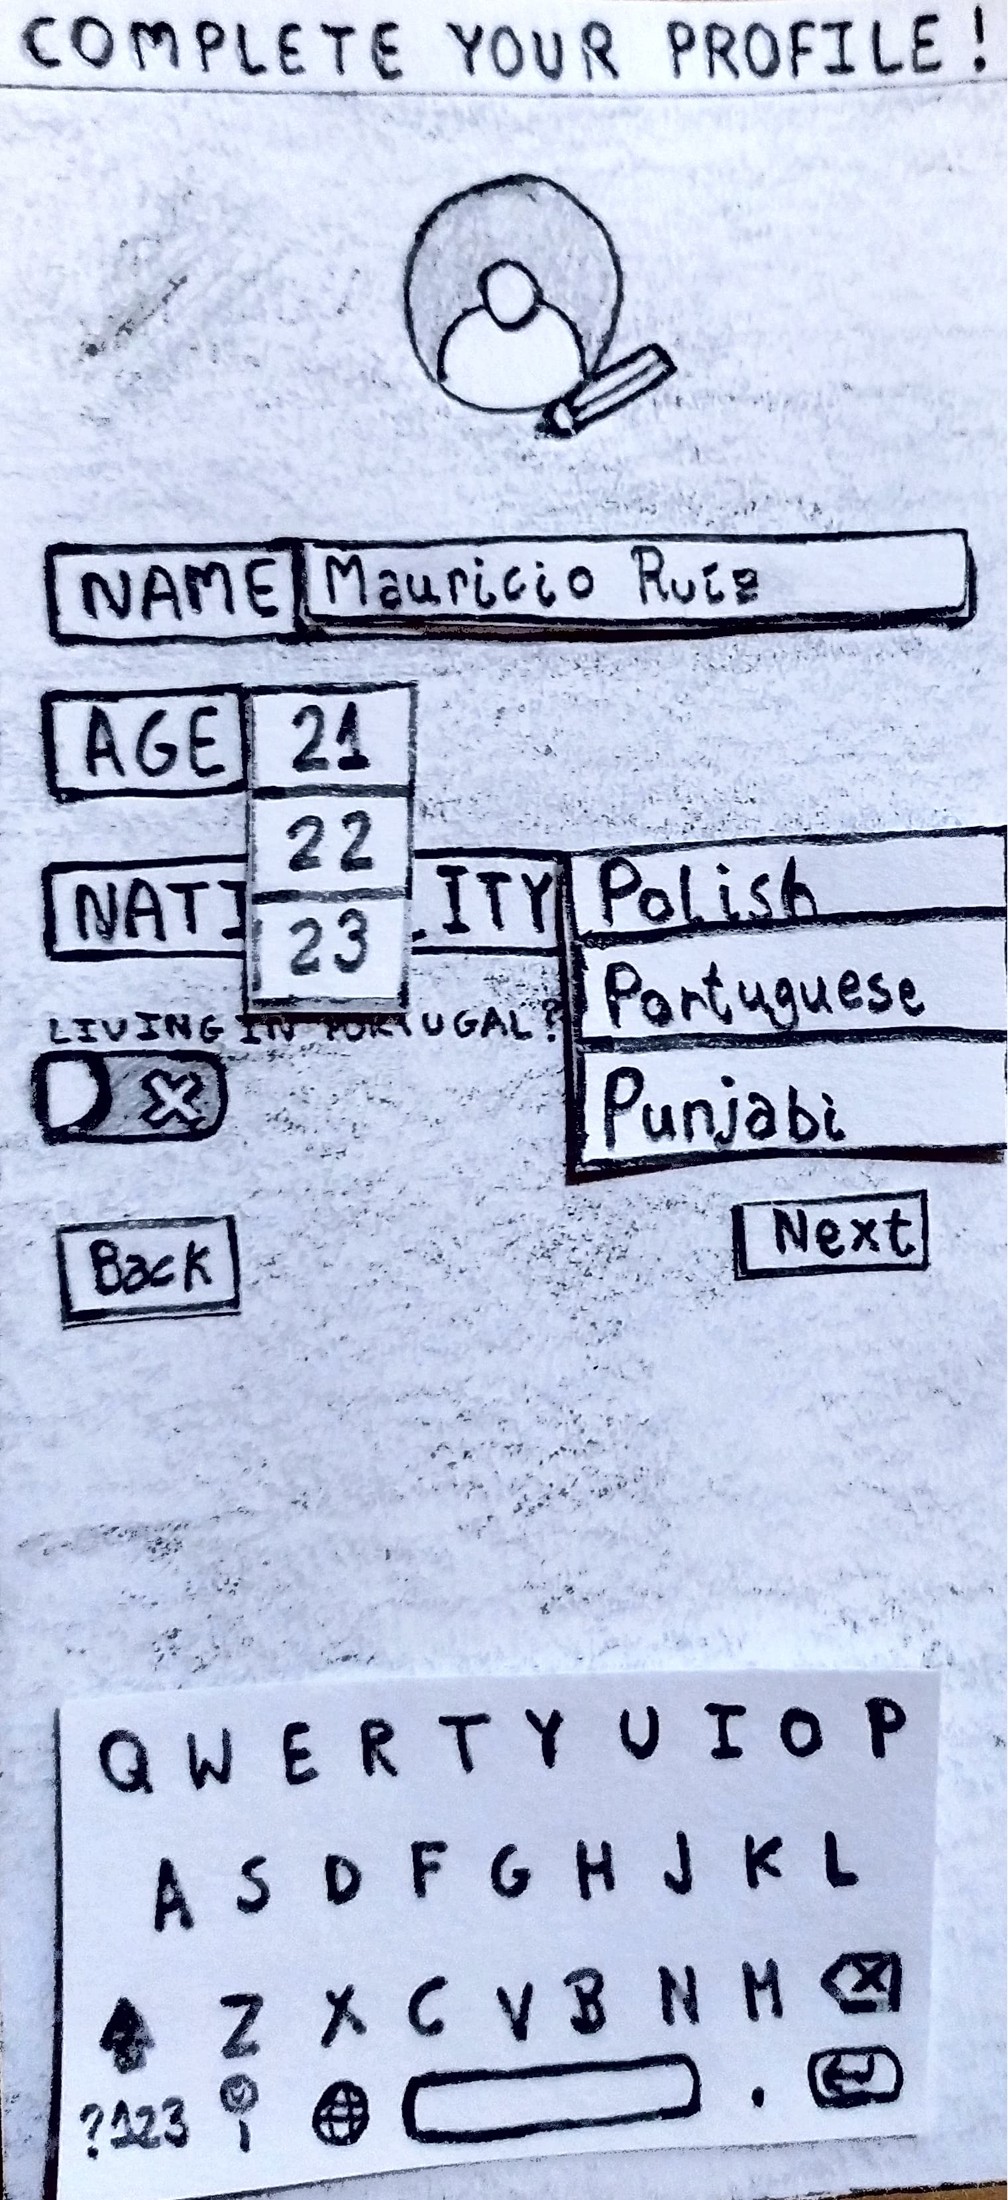 COMPLETE YOUR PROFILE!
NAME Mauricio Ruiz
AGE 21
22
NATI ITY Polish
23
Portuguese
LIVING IN PORTUGAL?
Punjabi
Back Next
Q W E R T Y U I O P
A S D F G H J K L
Z X C V B N M
?123 , .